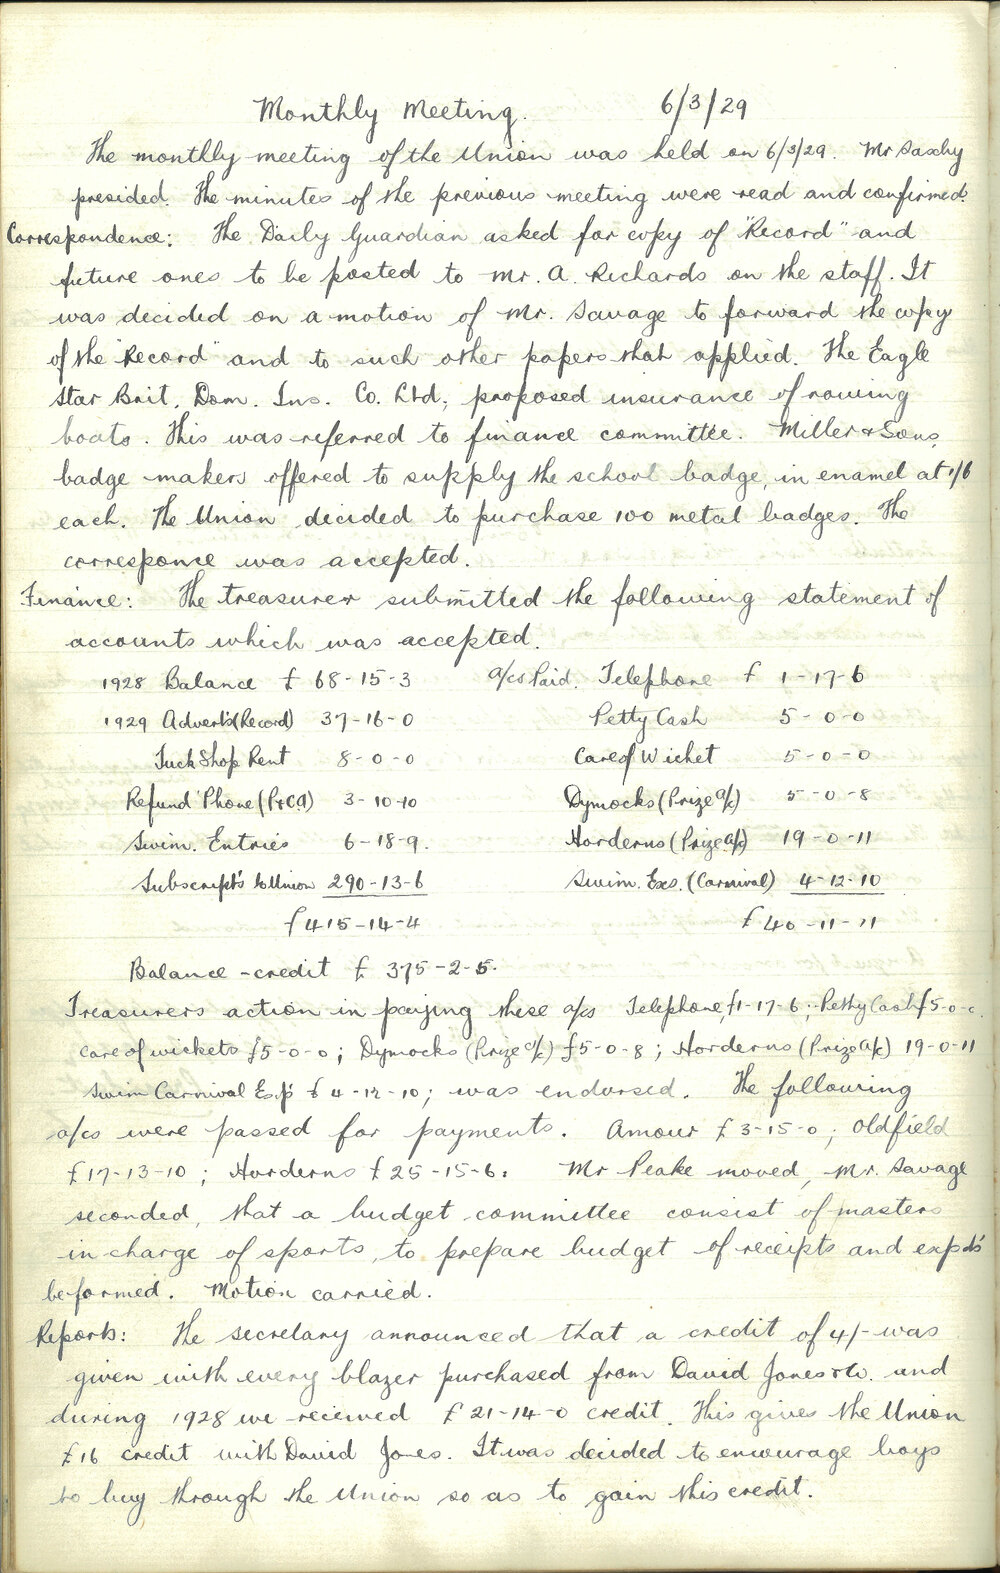 Monthly Meeting. 6/3/29
The monthly meeting of the Union was held on 6/3/29. Mr Saxby
presided. The minutes of the previous meeting were read and confirmed.
Correspondence: The Daily Guardian asked for copy of "Record" and
future ones to be posted to Mr. A. Richards on the staff. It
was decided on a motion of Mr. Savage to forward the copy
of the "Record" and to such other papers that applied. The Eagle
Star Brit. Dom. Ins. Co. Ltd; proposed insurance of rowing
boats. This was referred to finance committee. Miller & Sons,
badge makers offered to supply the school badge, in enamel at 1/6
each. The Union decided to purchase 100 metal badges. The
corresponce was accepted.
Finance: The treasurer submitted the following statement of
accounts which was accepted.
1928 Balance £ 68-15-3 a/cs Paid. Telephone £ 1-17-6
1929 Advert's (Record) 37-16-0 Petty Cash 5-0-0
Tuck Shop Rent 8-0-0 Care of Wicket 5-0-0
Refund 'Phone (P&CA) 3-10-10 Dymocks (Prize a/c) 5-0-8
Swim. Entries 6-18-9. Horderns (Prize a/c) 19-0-11
Subscript's to Union 290-13-6 Swim. Exs. (Carnival) 4-12-10
£415-14-4 £40-11-11
Balance - credit £ 375-2-5.
Treasurers action in paying these a/cs Telephone, £1-17-6; Petty Cash £5-0-0
care of wickets £5-0-0; Dymocks (Prize a/c) £5-0-8; Horderns (Prize a/c) 19-0-11
Swim Carnival Exp's £4-12-10; was endorsed. The following
a/cs were passed for payments. Amour £3-15-0; Oldfield
£17-13-10; Horderns £25-15-6. Mr Peake moved, Mr. Savage
seconded, that a budget committee consist of masters
in charge of sports, to prepare budget of receipts and expds'
be formed. Motion carried.
Reports: The secretary announced that a credit of 4/- was
given with every blazer purchased from David Jones & Co. and
during 1928 we received £21-14-0 credit. This gives the Union
£16 credit with David Jones. It was decided to encourage boys
to buy through the Union so as to gain this credit.